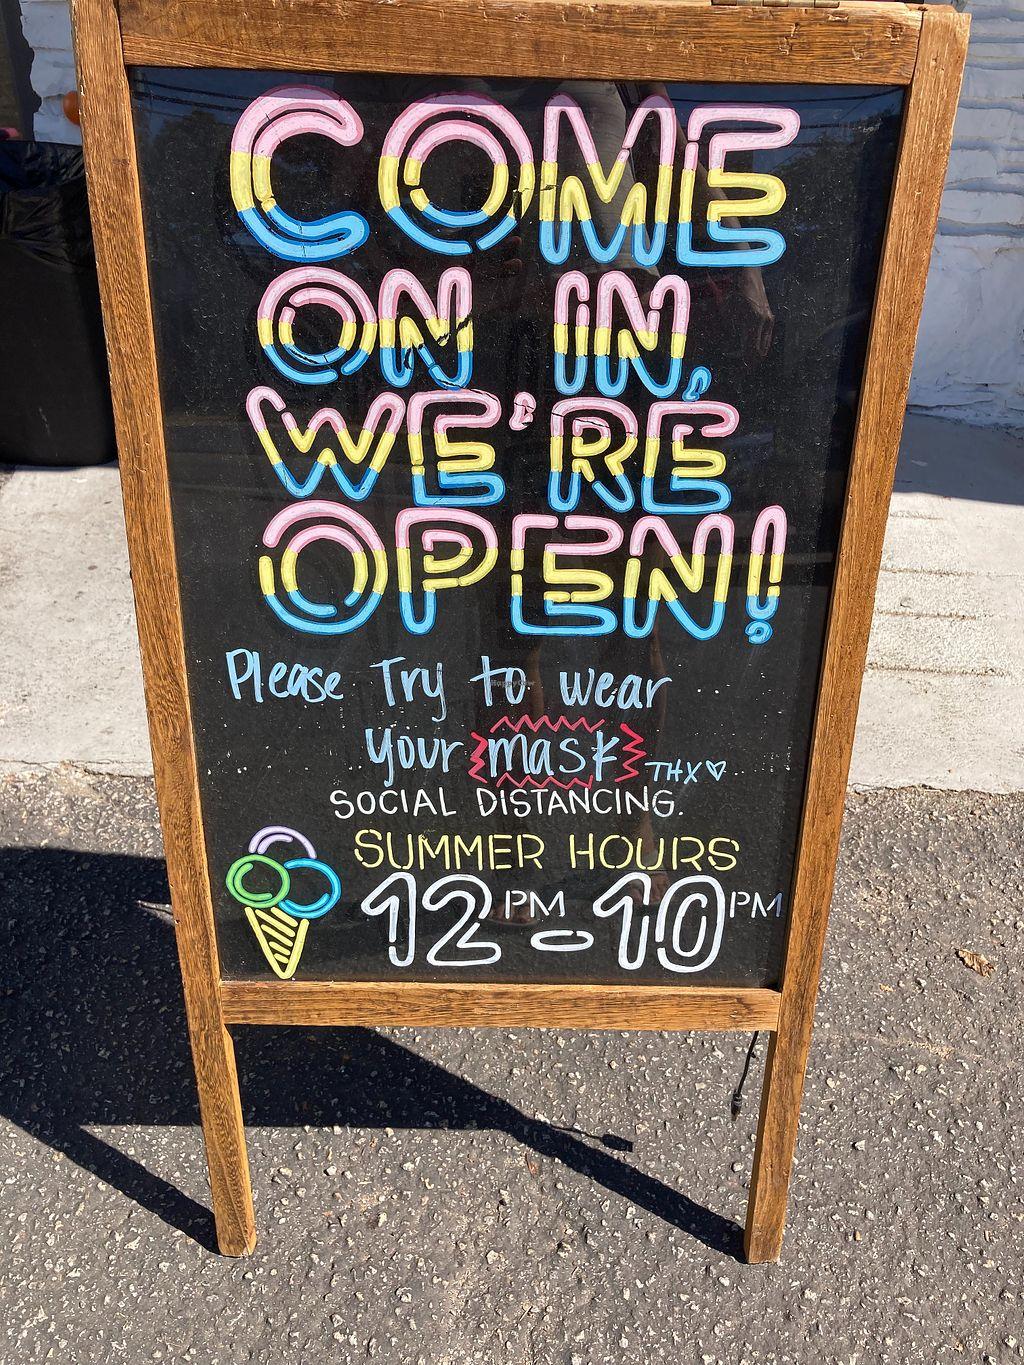 COME
ON IN,
WE'RE
OPEN!
Please Try to wear
your mask THX♡
SOCIAL DISTANCING.
SUMMER HOURS
12PM - 10PM